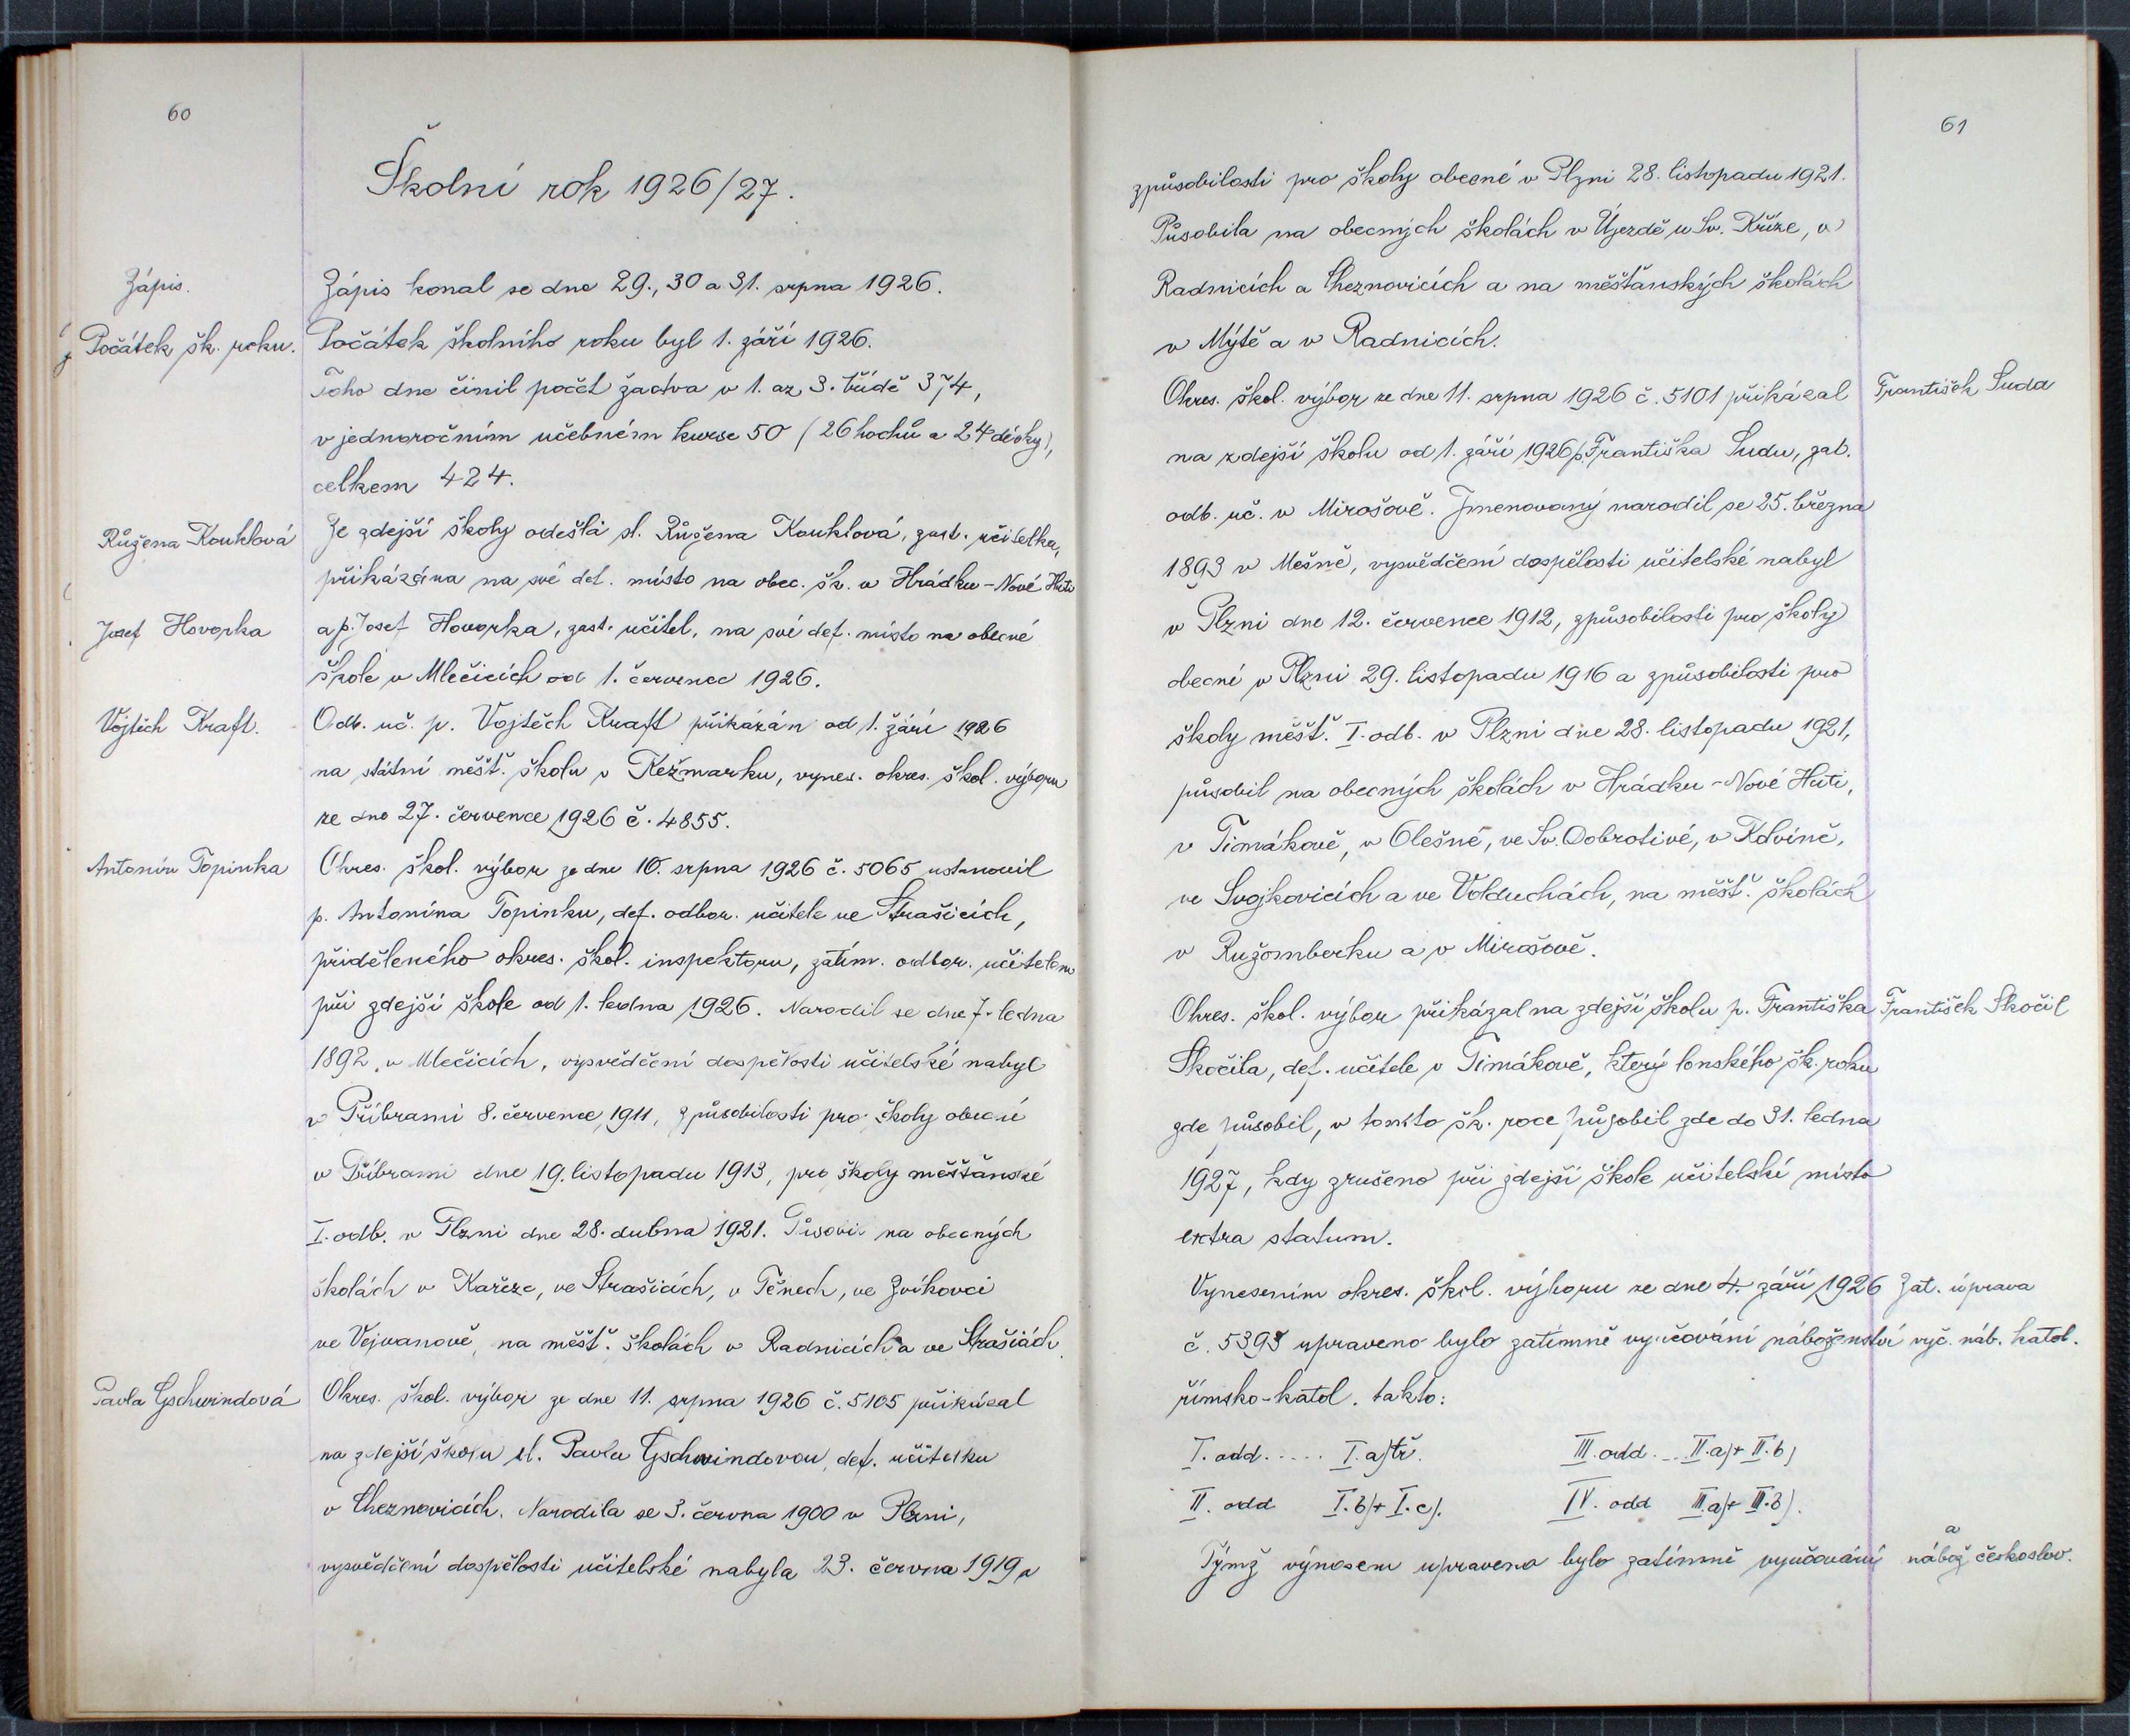 60
Školní rok 1926/27.
Zápis.
Zápis konal se dne 29., 30 a 31. srpna 1926.
Počátek šk. roku.
Počátek školního roku byl 1. září 1926.
Toho dne činil počet žactva v 1. až 3. třídě 374,
v jednoročním učebném kurse 50 (26 hochů a 24 dívky),
celkem 424.
Růžena Kouklová
Ze zdejší školy odešla sl. Růžena Kouklová, zast. učitelka,
přikázána na své def. místo na obec. šk. v Hrádku-Nové Huti
Josef Hovorka
a p. Josef Hovorka, zast. učitel, na své def. místo na obecné
škole v Mlečicích od 1. července 1926.
Vojtěch Kraft.
Odb. uč. p. Vojtěch Kraft přikázán od 1. září 1926
na státní měšť. školu v Kežmarku, vynes. okres. škol. výboru
ze dne 27. července 1926 č. 4855.
Antonín Topinka
Okres. škol. výbor ze dne 10. srpna 1926 č. 5065 ustanovil
p. Antonína Topinku, def. odbor. učitele ve Strašicích,
přiděleného okres. škol. inspektoru, zatím. odbor. učitelem
při zdejší škole od 1. ledna 1926. Narodil se dne 7. ledna
1892 v Mlečicích, vysvědčení dospělosti učitelské nabyl
v Příbrami 8. července 1911, způsobilosti pro školy obecné
v Příbrami dne 19. listopadu 1913, pro školy měšťanské
I. odb. v Plzni dne 28. dubna 1921. Působil na obecných
školách v Kařeze, ve Strašicích, v Těnech, ve Zvíkovci
ve Vejvanově, na měšť. školách v Radnicích a ve Strašicích.
Pavla Gschwindová
Okres. škol. výbor ze dne 11. srpna 1926 č. 5105 přikázal
na zdejší školu sl. Pavlu Gschwindovou, def. učitelku
v Cheznovicích. Narodila se 3. června 1900 v Plzni,
vysvědčení dospělosti učitelské nabyla 23. června 1919 a
61
způsobilosti pro školy obecné v Plzni 28. listopadu 1921.
Působila na obecných školách v Újezdě u Sv. Kříže, v
Radnicích a Cheznovicích a na měšťanských školách
v Mýtě a v Radnicích.
Okres. škol. výbor ze dne 11. srpna 1926 č. 5101 přikázal
František Suda
na zdejší školu od 1. září 1926 p. Františka Sudu, zat.
odb. uč. v Mirošově. Jmenovaný narodil se 25. března
1893 v Mešně, vysvědčení dospělosti učitelské nabyl
v Plzni dne 12. července 1912, způsobilosti pro školy
obecné v Plzni 29. listopadu 1916 a způsobilosti pro
školy měšť. I. odb. v Plzni dne 28. listopadu 1921,
působil na obecných školách v Hrádku-Nové Huti,
v Timákově, v Olešné, ve Sv. Dobrotivé, v Kdvíně,
ve Svojkovicích a ve Volduchách, na měšť. školách
v Ružomberku a v Mirošově.
Okres. škol. výbor přikázal na zdejší školu p. Františka
František Skočil
Skočila, def. učitele v Timákově, který lonského šk. roku
zde působil, v tomto šk. roce působil zde do 31. ledna
1927, kdy zrušeno při zdejší škole učitelské místo
extra statum.
Vynesením okres. škol. výboru ze dne 4. září 1926
Zat. úprava
č. 5393 upraveno bylo zatímně vyučování náboženství
vyč. náb. katol.
římsko-katol. takto:
I. odd. ..... I. a) tř. III. odd. ... II. a) + II. b)
II. odd I. b) + I. c). IV. odd III. a) + III. b).
Týmž výnosem upraveno bylo zatímně vyučování
a
nábož českoslov.